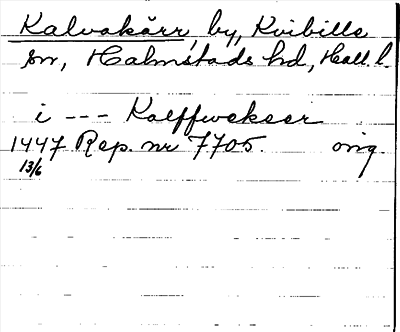 Kalvakärr, by, Kvibille
sn, Halmstads hd, Hall. l.
i --- Kalffwekæær
1447 Rep. nr 7705. orig.
13/6